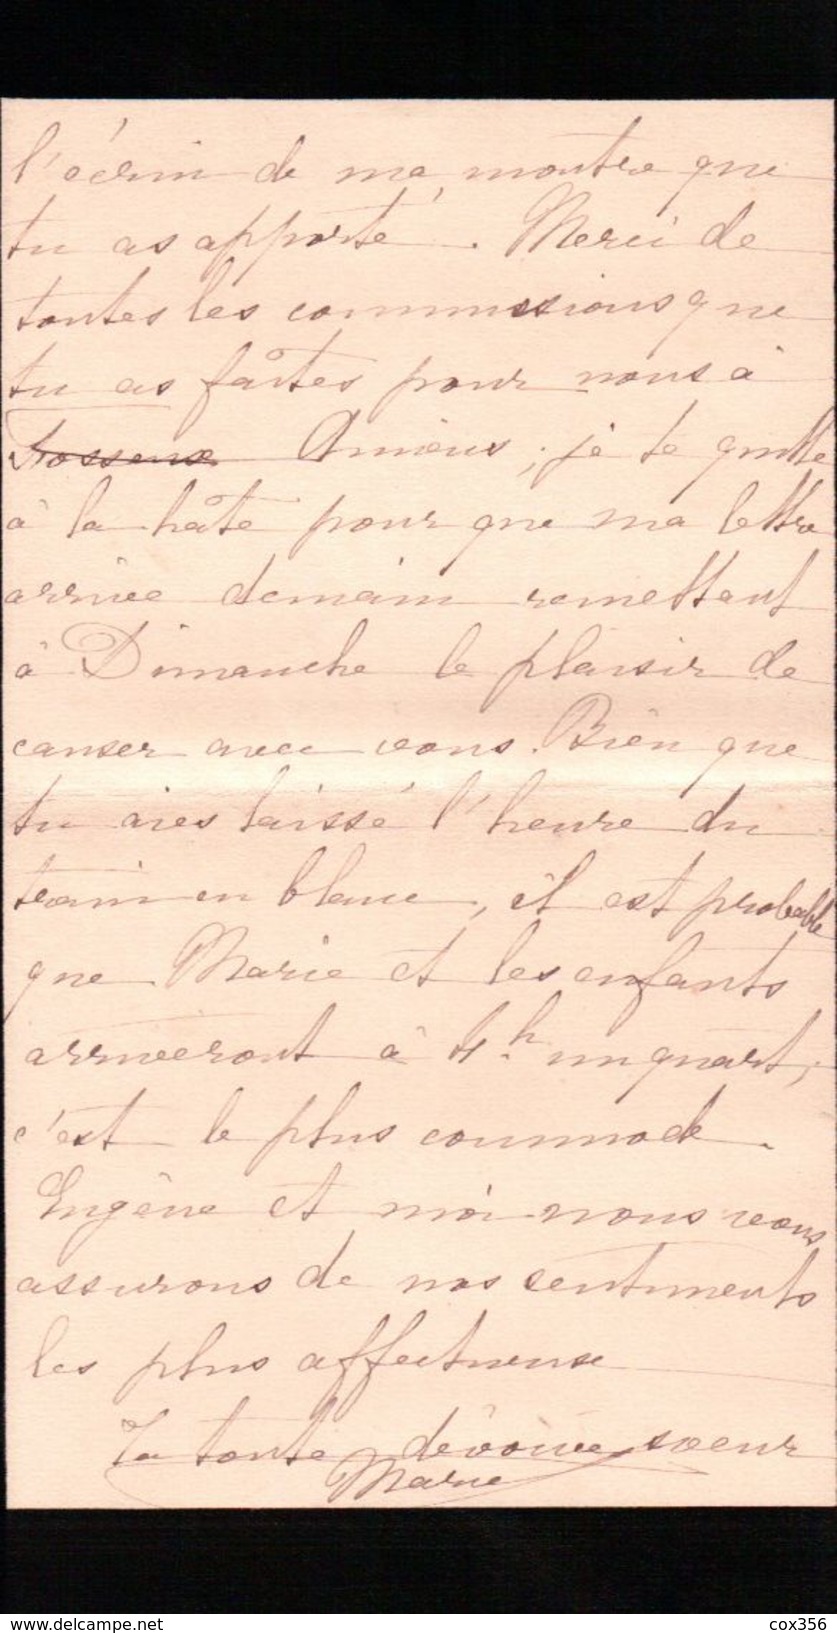 l'écrin de ma montre que
tu as apporté. Merci de
toutes les commissions que
tu as faîtes pour nous à
Amiens, je te quitte
à la hâte pour que ma lettre
arrive demain remettant
à Dimanche le plaisir de
causer avec vous. Bien que
tu aies laissé l'heure du
train en blanc, il est probable
que Marie et les enfants
arriveront à 4h un quart,
c'est le plus commode.
Eugène et moi nous vous
assurons de nos sentiments
les plus affectueux
Ta toute dévouée soeur
Marie
delcampe.net
cox356